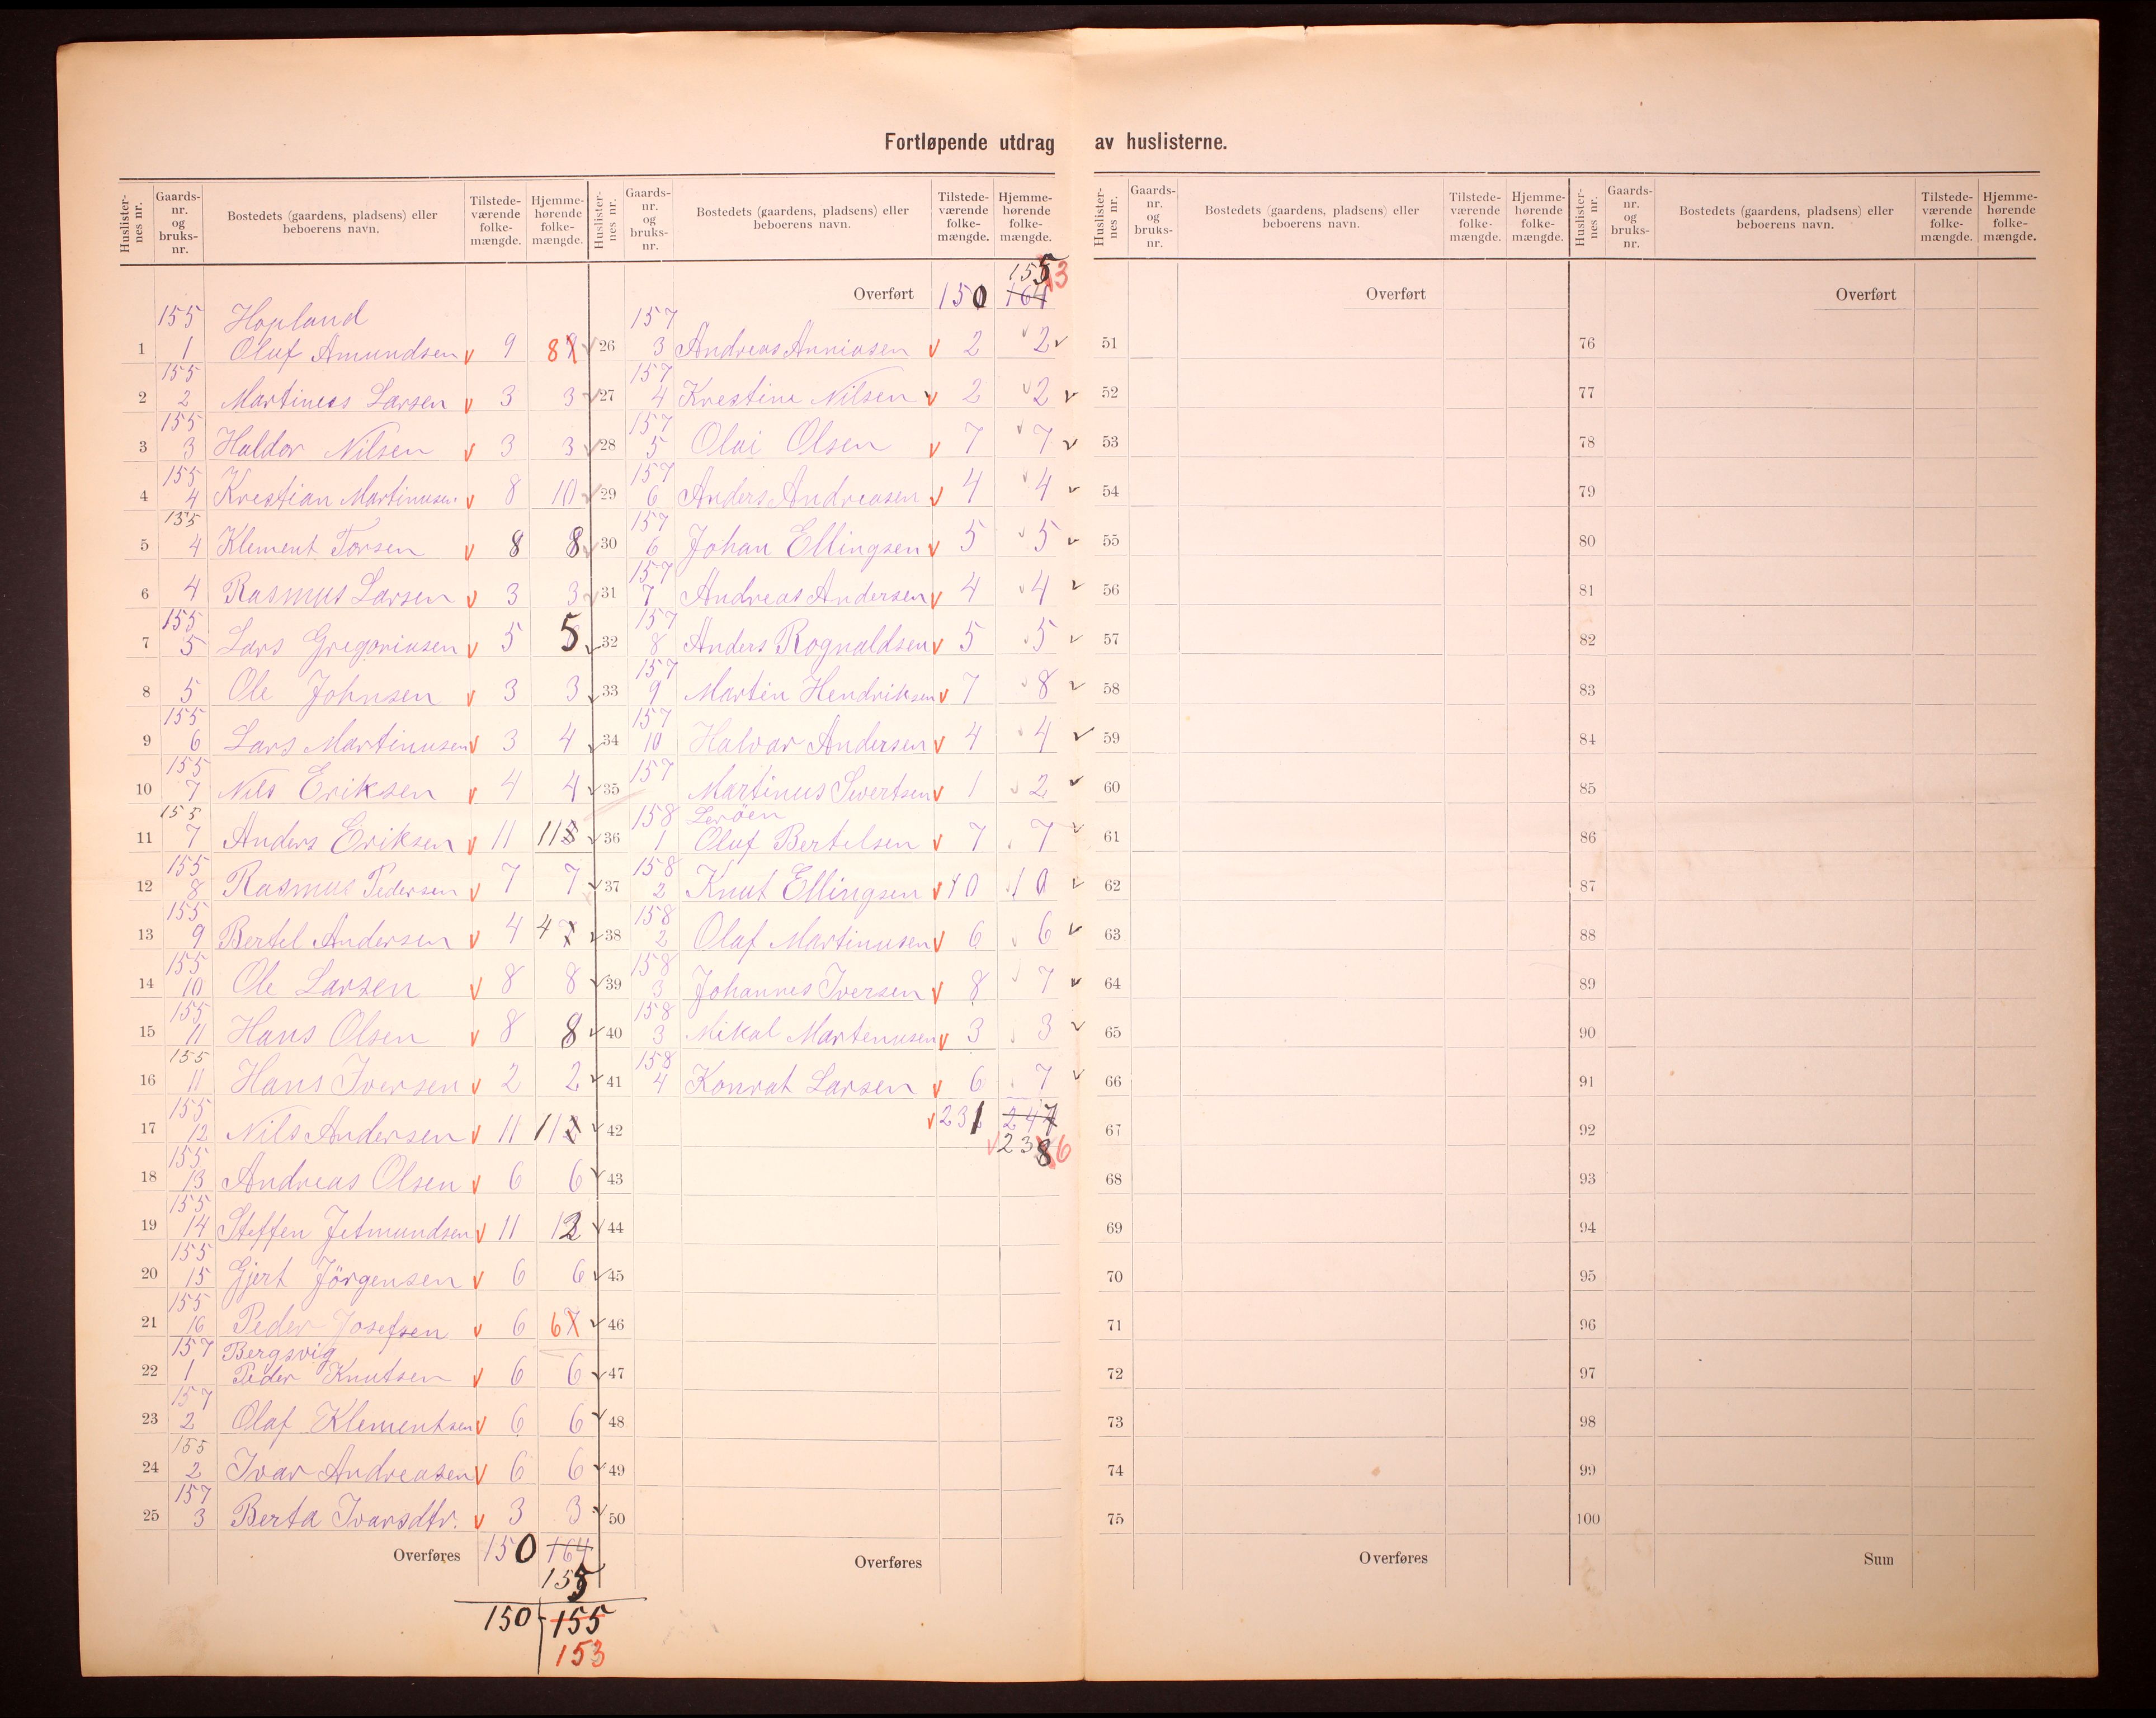 Fortløpende utdrag av huslisterne.
Huslisternes nr. Gaards-nr. og bruks-nr. Bostedets (gaardens, pladsens) eller beboerens navn. Tilstedeværende folkemængde. Hjemmehørende folkemængde.
155 Hopland
1 1 Oluf Amundsen 9 8
155
2 2 Martines Larsen 3 3
155
3 3 Haldor Nilsen 3 3
155
4 4 Krestian Martinusen 8 10
155
5 4 Klement Torsen 8 8
6 4 Rasmus Larsen 3 3
155
7 5 Lars Gregoriusen 5 5
8 5 Ole Johnsen 3 3
155
9 6 Lars Martinusen 3 4
155
10 7 Nils Eriksen 4 4
155
11 7 Anders Eriksen 11 11
155
12 8 Rasmus Pedersen 7 7
155
13 9 Bertel Andersen 4 4
155
14 10 Ole Larsen 8 8
155
15 11 Hans Olsen 8 8
155
16 11 Hans Iversen 2 2
155
17 12 Nils Andersen 11 11
155
18 13 Andreas Olsen 6 6
155
19 14 Steffen Jetmundsen 11 12
155
20 15 Gjert Jörgensen 6 6
155
21 16 Peder Josefsen 6 6
157 Bergsvig
22 1 Peder Knutsen 6 6
157
23 2 Olaf Klementsen 6 6
155
24 2 Ivar Andreasen 6 6
157
25 3 Berta Ivarsdtr. 3 3
Overføres 150 164
155
150 155
153
Huslisternes nr. Gaards-nr. og bruks-nr. Bostedets (gaardens, pladsens) eller beboerens navn. Tilstedeværende folkemængde. Hjemmehørende folkemængde.
155 3
Overført 150 164
157
26 3 Andreas Anniasen 2 2
157
27 4 Krestine Nilsen 2 2
157
28 5 Olai Olsen 7 7
157
29 6 Anders Andreasen 4 4
157
30 6 Johan Ellingsen 5 5
157
31 7 Andreas Andersen 4 4
157
32 8 Anders Rognaldsen 5 5
157
33 9 Martin Hendriksen 7 8
157
34 10 Halvar Andersen 4 4
157
35 Martinus Sivertsen 1 2
158 Leröen
36 1 Oluf Bertelsen 7 7
158
37 2 Knut Ellingsen 10 10
158
38 2 Olaf Martinusen 6 6
158
39 3 Johannes Iversen 8 7
158
40 3 Mikal Martenusen 3 3
158
41 4 Konrat Larsen 6 7
42 231 247
238 6
43
44
45
46
47
48
49
50
Overføres
Huslisternes nr. Gaards-nr. og bruks-nr. Bostedets (gaardens, pladsens) eller beboerens navn. Tilstedeværende folkemængde. Hjemmehørende folkemængde.
Overført
51
52
53
54
55
56
57
58
59
60
61
62
63
64
65
66
67
68
69
70
71
72
73
74
75
Overføres
Huslisternes nr. Gaards-nr. og bruks-nr. Bostedets (gaardens, pladsens) eller beboerens navn. Tilstedeværende folkemængde. Hjemmehørende folkemængde.
Overført
76
77
78
79
80
81
82
83
84
85
86
87
88
89
90
91
92
93
94
95
96
97
98
99
100
Sum